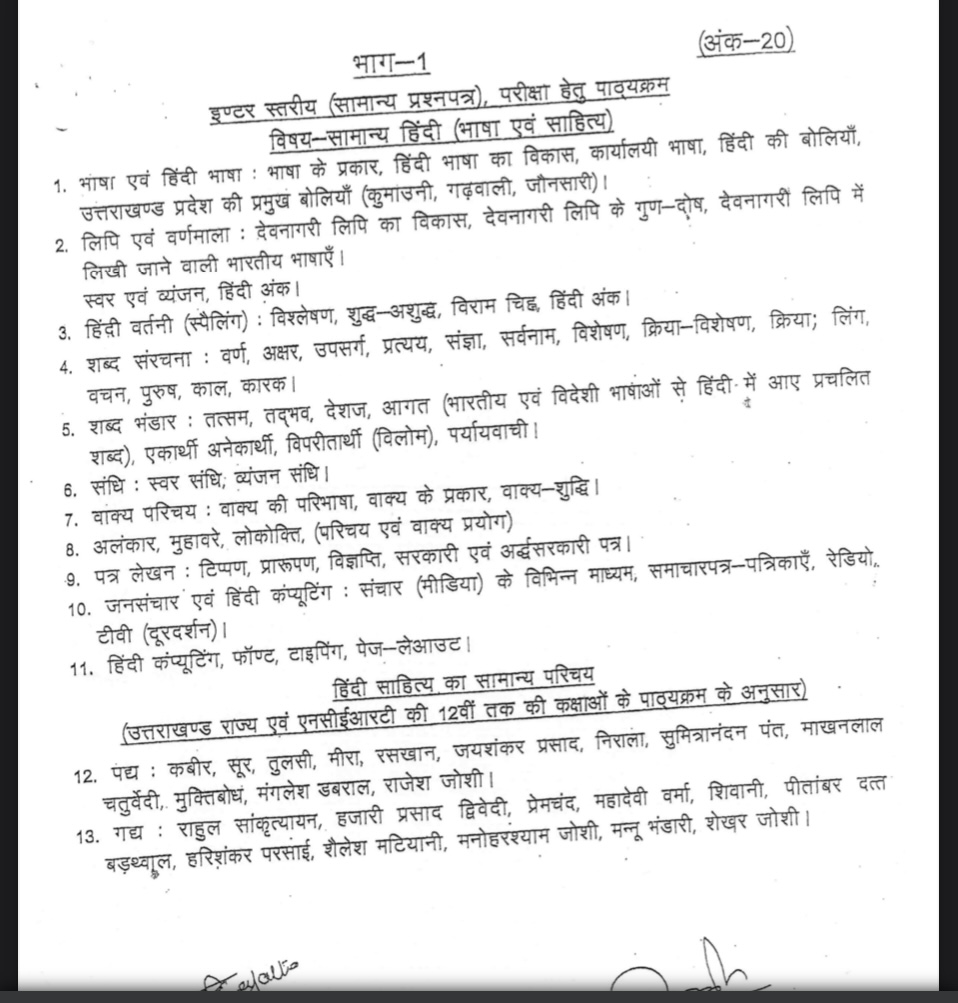 (अंक–20)
भाग–1
इण्टर स्तरीय (सामान्य प्रश्नपत्र), परीक्षा हेतु पाठ्यक्रम
विषय–सामान्य हिंदी (भाषा एवं साहित्य)
1. भाषा एवं हिंदी भाषा : भाषा के प्रकार, हिंदी भाषा का विकास, कार्यालयी भाषा, हिंदी की बोलियाँ,
उत्तराखण्ड प्रदेश की प्रमुख बोलियाँ (कुमाउनी, गढ़वाली, जौनसारी)।
2. लिपि एवं वर्णमाला : देवनागरी लिपि का विकास, देवनागरी लिपि के गुण–दोष, देवनागरी लिपि में
लिखी जाने वाली भारतीय भाषाएँ।
स्वर एवं व्यंजन, हिंदी अंक।
3. हिंदी वर्तनी (स्पैलिंग) : विश्लेषण, शुद्ध–अशुद्ध, विराम चिह्न, हिंदी अंक।
4. शब्द संरचना : वर्ण, अक्षर, उपसर्ग, प्रत्यय, संज्ञा, सर्वनाम, विशेषण, क्रिया–विशेषण, क्रिया; लिंग,
वचन, पुरुष, काल, कारक।
5. शब्द भंडार : तत्सम, तद्भव, देशज, आगत (भारतीय एवं विदेशी भाषाओं से हिंदी में आए प्रचलित
शब्द), एकार्थी अनेकार्थी, विपरीतार्थी (विलोम), पर्यायवाची।
6. संधि : स्वर संधि, व्यंजन संधि।
7. वाक्य परिचय : वाक्य की परिभाषा, वाक्य के प्रकार, वाक्य–शुद्धि।
8. अलंकार, मुहावरे, लोकोक्ति, (परिचय एवं वाक्य प्रयोग)
9. पत्र लेखन : टिप्पण, प्रारूपण, विज्ञप्ति, सरकारी एवं अर्द्धसरकारी पत्र।
10. जनसंचार एवं हिंदी कंप्यूटिंग : संचार (मीडिया) के विभिन्न माध्यम, समाचारपत्र–पत्रिकाएँ, रेडियो,
टीवी (दूरदर्शन)।
11. हिंदी कंप्यूटिंग, फॉण्ट, टाइपिंग, पेज–लेआउट।
हिंदी साहित्य का सामान्य परिचय
(उत्तराखण्ड राज्य एवं एनसीईआरटी की 12वीं तक की कक्षाओं के पाठ्यक्रम के अनुसार)
12. पद्य : कबीर, सूर, तुलसी, मीरा, रसखान, जयशंकर प्रसाद, निराला, सुमित्रानंदन पंत, माखनलाल
चतुर्वेदी, मुक्तिबोध, मंगलेश डबराल, राजेश जोशी।
13. गद्य : राहुल सांकृत्यायन, हजारी प्रसाद द्विवेदी, प्रेमचंद, महादेवी वर्मा, शिवानी, पीतांबर दत्त
बड़थ्वाल, हरिशंकर परसाई, शैलेश मटियानी, मनोहरश्याम जोशी, मन्नू भंडारी, शेखर जोशी।